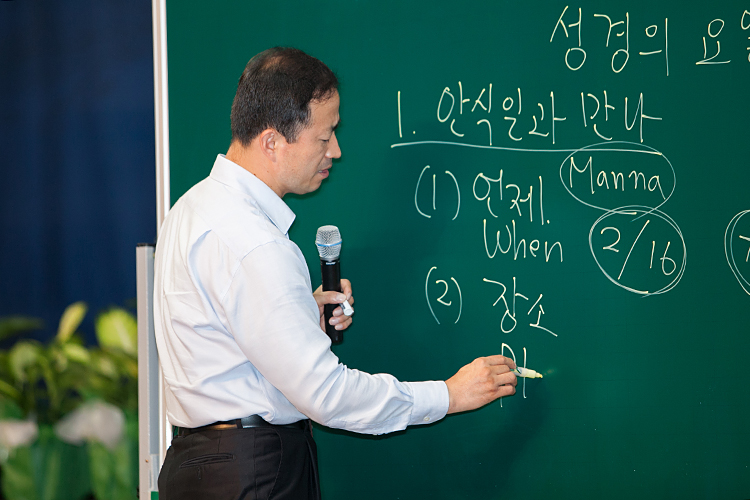 성경의 요일
1. 안식일과 만나
(1) 언제. Manna
When 2/16
(2) 장소